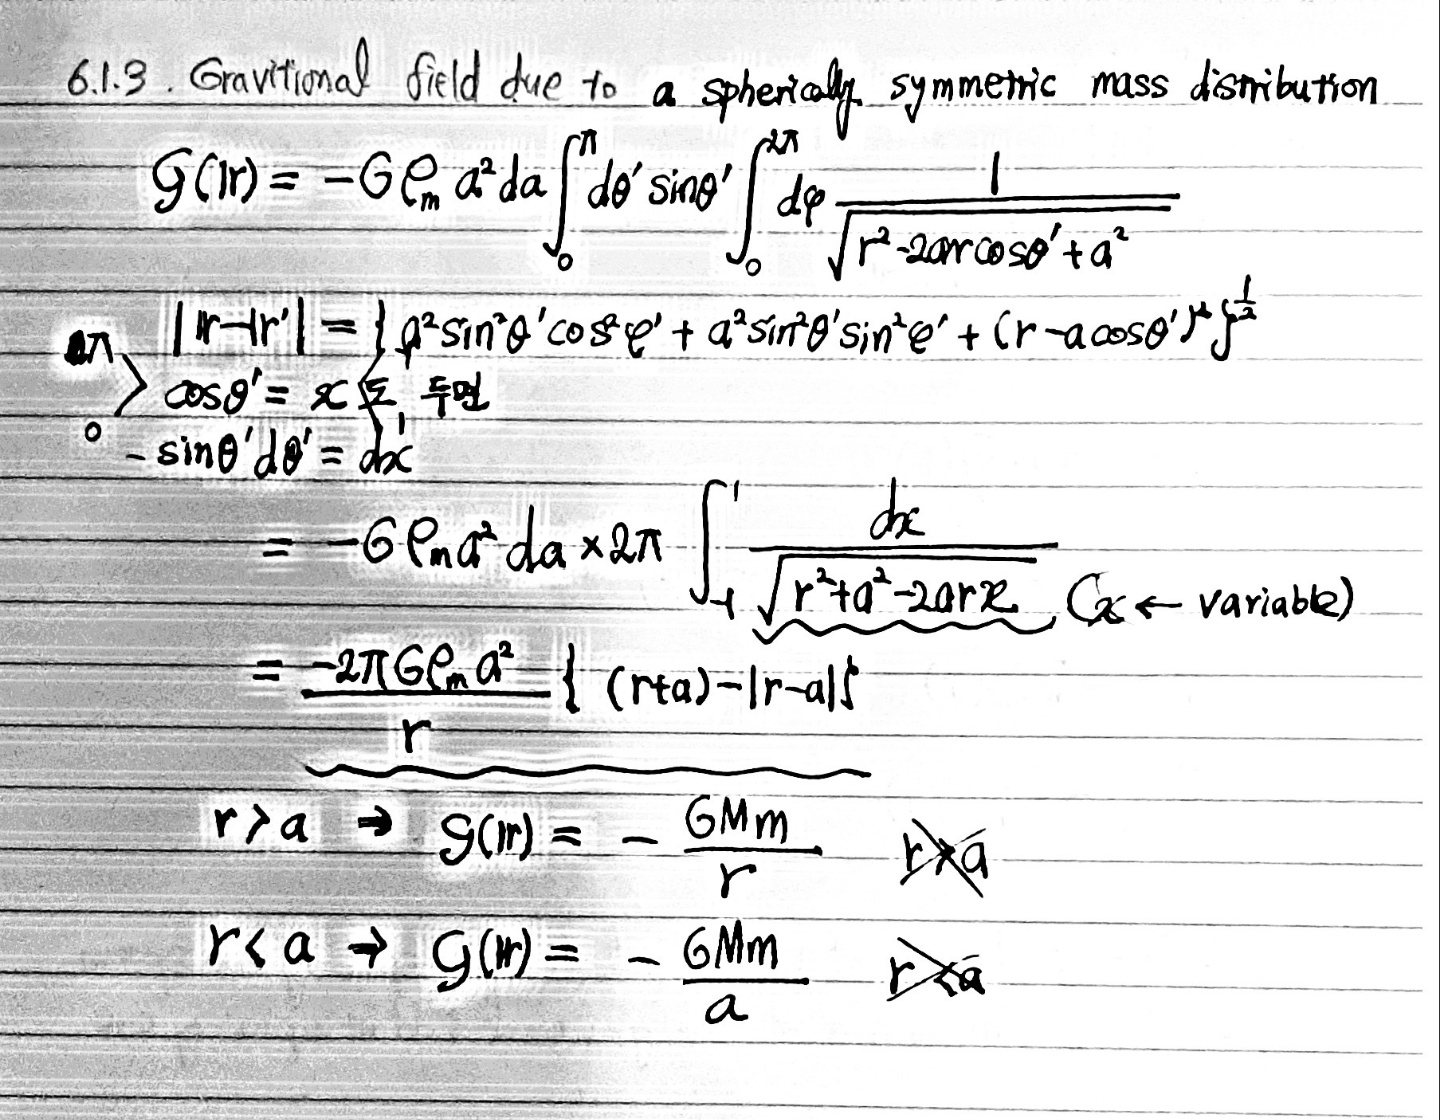 6.1.3. Gravitional field due to a spherically symmetric mass distribution
𝒢(𝕣) = -Gρₘ a² da ∫₀^π dθ' sinθ' ∫₀^2π dφ 1/√(r²-2arcosθ'+a²)
|𝕣-𝕣'| = {a²sin²θ'cos²φ' + a²sin²θ'sin²φ' + (r-acosθ')²}^½
2π
0
cosθ' = x 로 두면
-sinθ'dθ' = dx
= -Gρₘa² da × 2π ∫₋₁^1 dx/√(r²+a²-2arx) (x ← variable)
= -2πGρₘa²/r { (r+a)-|r-a| }
r > a ⇒ 𝒢(𝕣) = - GMm/r r>a
r < a → 𝒢(𝕣) = - GMm/a r<a